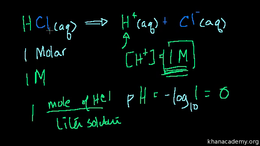 HCl(aq) ⟹ H⁺(aq) + Cl⁻(aq)
1 Molar
[H⁺] = 1 M
1 M
1 mole of HCl
Liter solution
pH = -log₁₀ 1 = 0
khanacademy.org